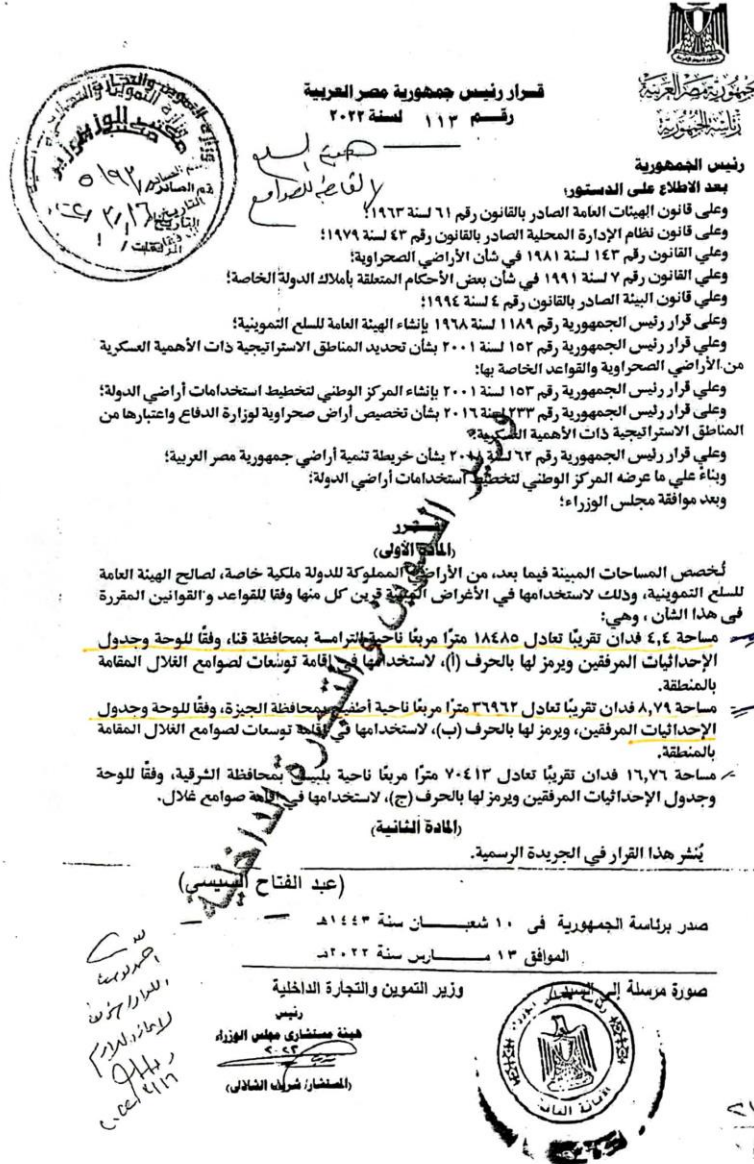 جمهورية مصر العربية
رئاسة الجمهورية
قرار رئيس جمهورية مصر العربية
رقم ١١٣ لسنة ٢٠٢٢
هيئة السلع
القابضة للصوامع
وزارة التموين والتجارة الداخلية
مكتب الوزير
رقم الصادر
التاريخ
المرفقات
رئيس الجمهورية
بعد الاطلاع على الدستور؛
وعلى قانون الهيئات العامة الصادر بالقانون رقم ٦١ لسنة ١٩٦٣؛
وعلى قانون نظام الإدارة المحلية الصادر بالقانون رقم ٤٣ لسنة ١٩٧٩؛
وعلي القانون رقم ١٤٣ لسنة ١٩٨١ في شأن الأراضي الصحراوية؛
وعلي القانون رقم ٧ لسنة ١٩٩١ في شأن بعض الأحكام المتعلقة بأملاك الدولة الخاصة؛
وعلي قانون البيئة الصادر بالقانون رقم ٤ لسنة ١٩٩٤؛
وعلى قرار رئيس الجمهورية رقم ١١٨٩ لسنة ١٩٦٨ بإنشاء الهيئة العامة للسلع التموينية؛
وعلي قرار رئيس الجمهورية رقم ١٥٢ لسنة ٢٠٠١ بشأن تحديد المناطق الاستراتيجية ذات الأهمية العسكرية
من الأراضي الصحراوية والقواعد الخاصة بها؛
وعلي قرار رئيس الجمهورية رقم ١٥٣ لسنة ٢٠٠١ بإنشاء المركز الوطني لتخطيط استخدامات أراضي الدولة؛
وعلى قرار رئيس الجمهورية رقم ٢٣٣ لسنة ٢٠١٦ بشأن تخصيص أراض صحراوية لوزارة الدفاع واعتبارها من
المناطق الاستراتيجية ذات الأهمية العسكرية؛
وعلي قرار رئيس الجمهورية رقم ٦٢ لسنة بشأن خريطة تنمية أراضي جمهورية مصر العربية؛
وبناءً علي ما عرضه المركز الوطني لتخطيط استخدامات أراضي الدولة؛
وبعد موافقة مجلس الوزراء؛
قـــرر
(المادة الأولى)
تُخصص المساحات المبينة فيما بعد، من الأراضي المملوكة للدولة ملكية خاصة، لصالح الهيئة العامة
للسلع التموينية، وذلك لاستخدامها في الأغراض المبينة قرين كل منها وفقا للقواعد والقوانين المقررة
في هذا الشأن، وهي:
مساحة ٤,٤ فدان تقريبًا تعادل ١٨٤٨٥ مترًا مربعًا ناحية الترامسة بمحافظة قنا، وفقًا للوحة وجدول
الإحداثيات المرفقين ويرمز لها بالحرف (أ)، لاستخدامها في إقامة توسعات لصوامع الغلال المقامة
بالمنطقة.
مساحة ٨,٧٩ فدان تقريبًا تعادل ٣٦٩٦٢ مترًا مربعًا ناحية أطفيح بمحافظة الجيزة، وفقًا للوحة وجدول
الإحداثيات المرفقين، ويرمز لها بالحرف (ب)، لاستخدامها في إقامة توسعات لصوامع الغلال المقامة
بالمنطقة.
مساحة ١٦,٧٦ فدان تقريبًا تعادل ٧٠٤١٣ مترًا مربعًا ناحية بلبيس بمحافظة الشرقية، وفقًا للوحة
وجدول الإحداثيات المرفقين ويرمز لها بالحرف (ج)، لاستخدامها في إقامة صوامع غلال.
(المادة الثانية)
يُنشر هذا القرار في الجريدة الرسمية.
(عبد الفتاح السيسى)
صدر برئاسة الجمهورية فى ١٠ شعبـــان سنة ١٤٤٣هـ
الموافق ١٣ مـــارس سنة ٢٠٢٢مـ
صورة مرسلة إلى السيد/ وزير التموين والتجارة الداخلية
رئيس
هيئة مستشارى مجلس الوزراء
(المستشار/ شريف الشاذلى)
الأمانة العامة
وزير التموين والتجارة الداخلية